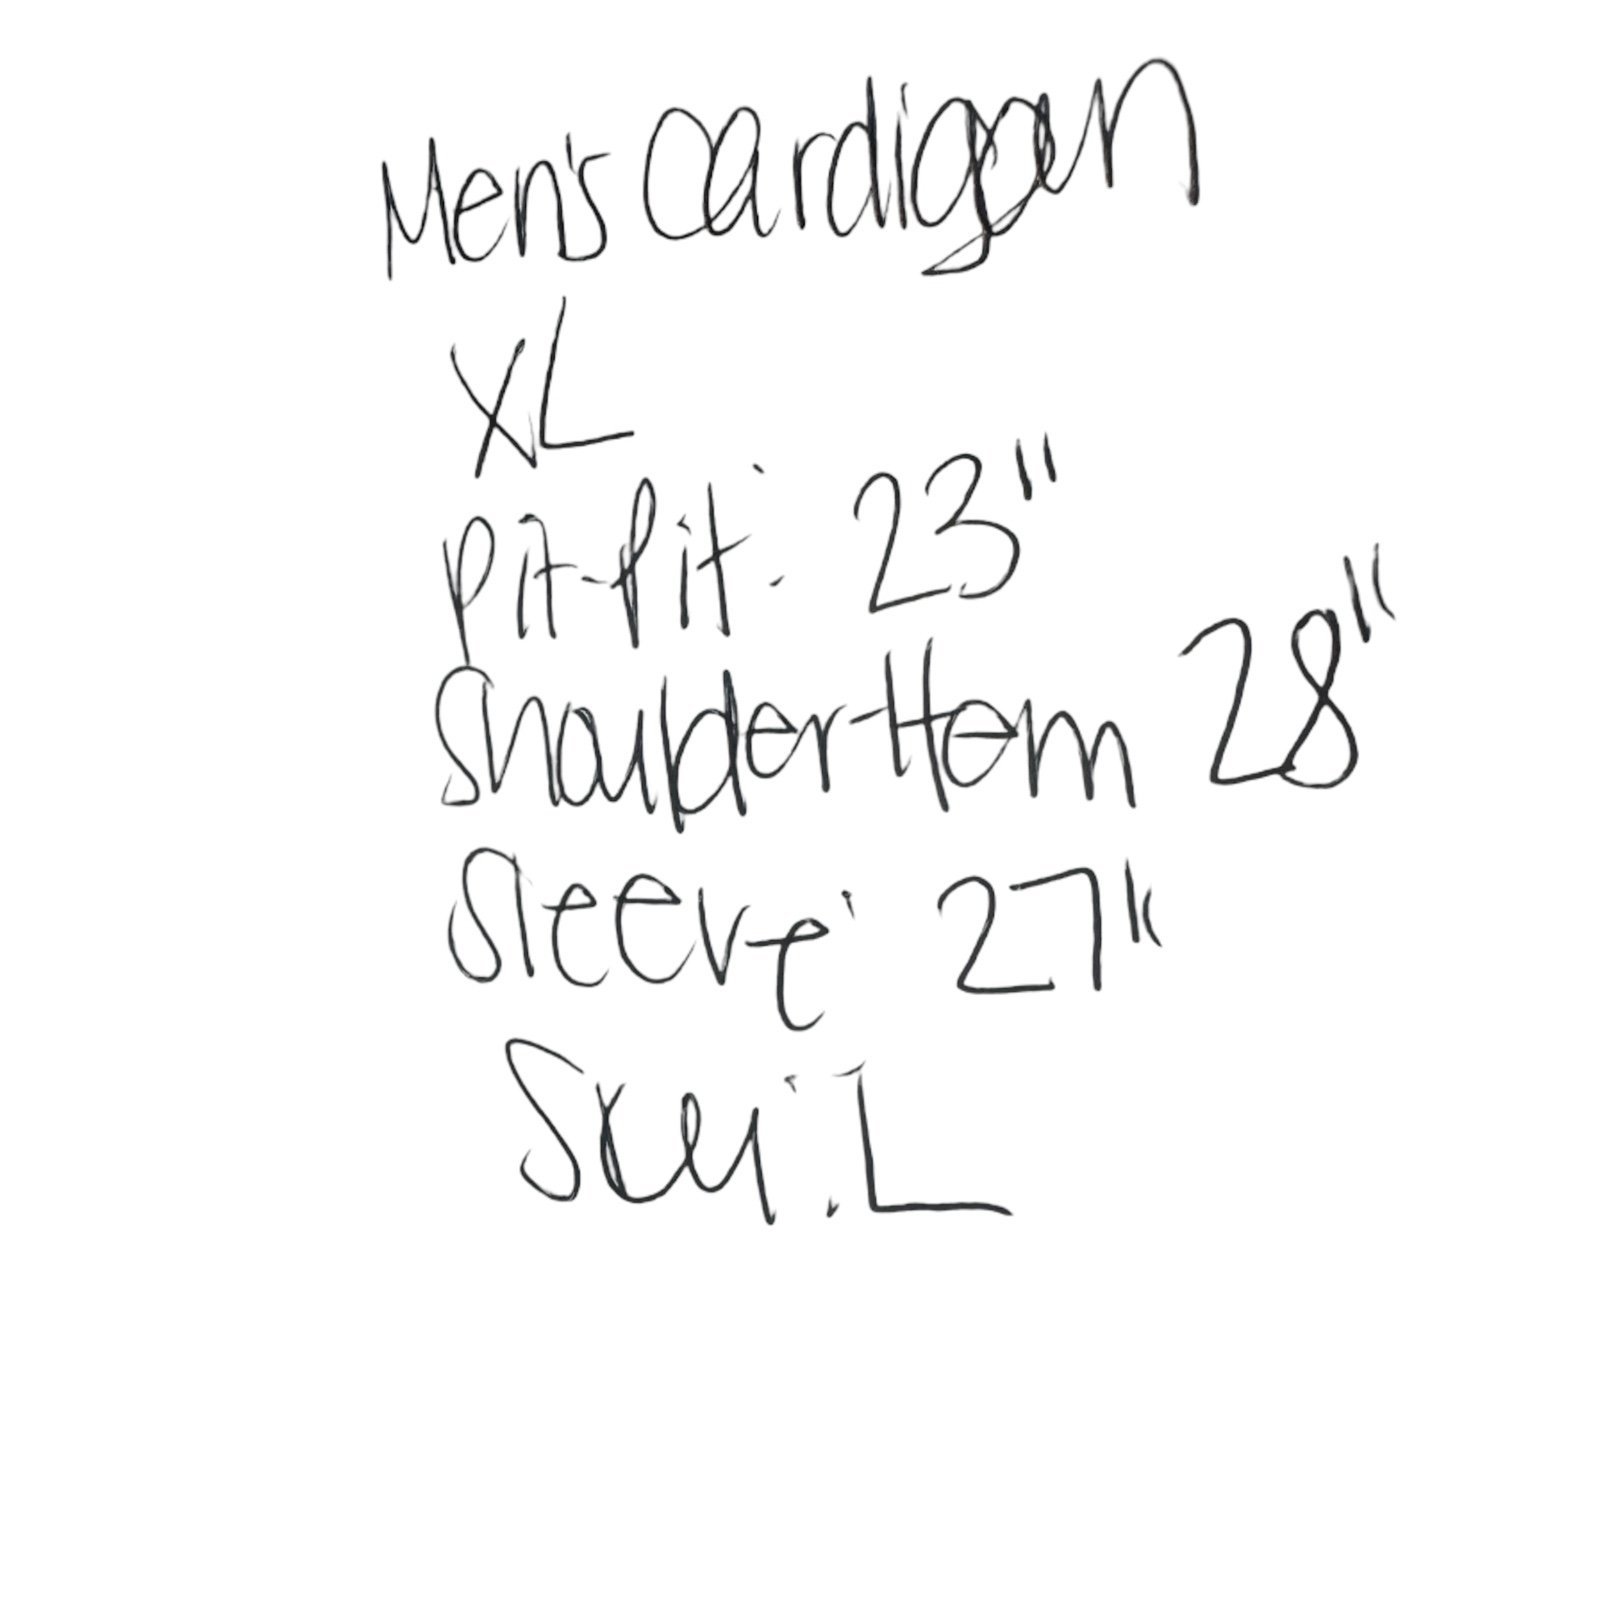 Men's Cardigan
XL
Pit-Pit: 23"
Shoulder-Hem 28"
Sleeve: 27"
Sku: L